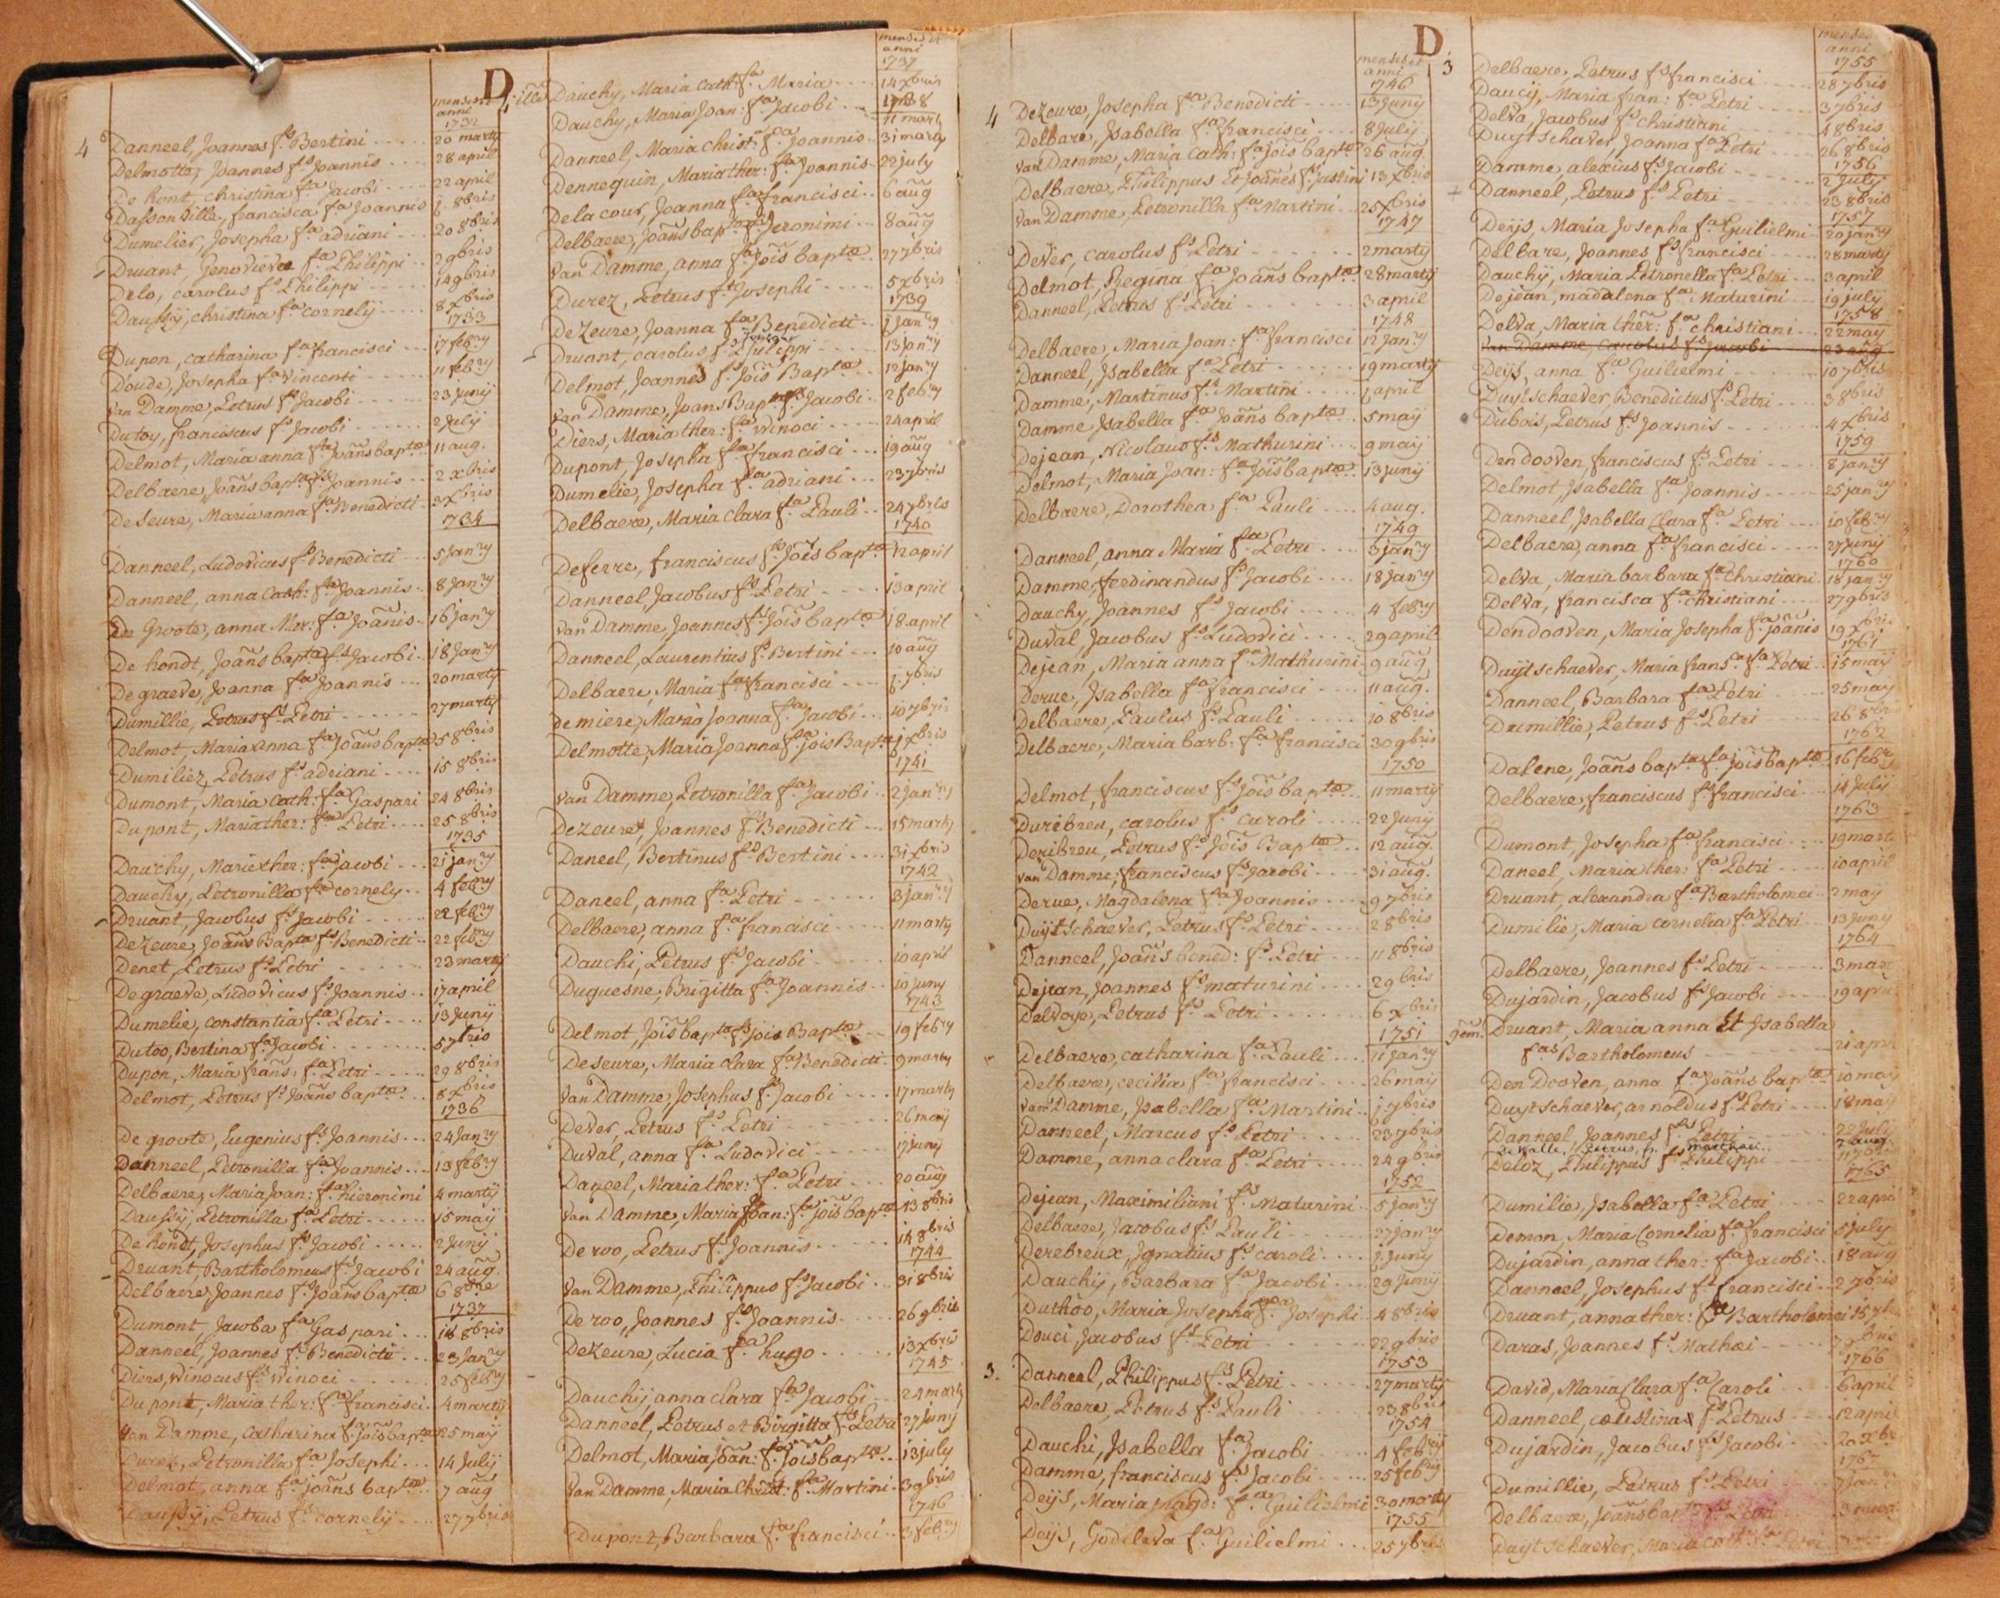 D
menses et
anni
1732
4 Danneel, Joannes fs Bertini 20 marty
Delmotte, Joannes fs Joannis 28 april
De hont, christina fa Jacobi 22 april
Dassonville, francisca fa Joannis j 8bris
Dumelier, Josepha fa adriani 20 8bris
Druant, Genovieve fa Philippi 29bris
Delo, carolus fs Philippi 149bris
Daussy, christina fa cornely 8xbris
1733
Dupon, catharina fa francisci 17 febry
Doude, Josepha fa vincenti 11 febry
van Damme, Petrus fs Jacobi 23 junij
Dutoy, franciscus fs Jacobi 2 July
Delmot, Maria anna fa Joañs baptæ 11 aug.
Delbaere, Joañs bapta fs Joannis 2 xbris
Deseure, Maria anna fa Benedicti 3xbris
1734
Danneel, Ludovicus fs Benedicti 5 Janry
Danneel, anna Cath: fa Joannis 8 Janry
De Groote, anna Mar: fa Joañis 16 Janry
De hondt, Joañs bapta fs Jacobi 18 Janry
De graeve, Joanna fa Joannis 20 marty
Dumillie, Petrus fs Petri 27 marty
Delmot, Maria anna fa Joañs baptæ 5 8bris
Dumiliez, Petrus fs adriani 15 8bris
Dumont, Maria Cath: fa Gaspari 24 8bris
Dupont, Maria ther: fa Petri 25 8bris
1735
Dauchy, Maria ther: fa Jacobi 21 janry
Dauchy, Petronilla fa cornely 4 febry
Druant, Jacobus fs Jacobi 22 febry
Dezeure, Joañs Bapta fs Benedicti 22 febry
Denet, Petrus fs Petri 23 marty
Degraeve, Ludovicus fs Joannis 17 april
Dumelie, constantia fa Petri 13 Junij
Dutoo, Bertina fa Jacobi 57bris
Dupon, Maria frañs: fa Petri 29 8bris
Delmot, Petrus fs Joañs baptæ 8xbris
1736
De groote, Eugenius fs Joannis 24 Janry
Danneel, Petronilla fa Joannis 13 febry
Delbaere, Maria Joan: fa hieronimi 4 martij
Daussy, Petronilla fa Petri 15 maij
De hondt, Josephus fs Jacobi 2 Junij
Druant, Bartholomeus fs Jacobi 24 aug.
Delbaere, Joannes fs Joañs baptæ 6 8bre
1737
Dumont, Jacoba fa Gaspari 8bris
Danneel, Joannes fs Benedicti 23 Janry
Diers, Winocus fs Winoci 25 febry
Dupont, Maria ther: fa francisci 4 marty
Van Damme, catharina fa Joiis baptæ 25 maij
Durez, Petronilla fa Josephi 14 July
Delmot, anna fa Joañs baptæ 7 aug
Daussy, Petrus fs cornely 277bris
menses et
anni
1737
Dauchy, Maria Cath: fa Maria 14xbris
1738
Dauchy, Maria Joan: fa Jacobi 11 marty
Danneel, Maria Christ: fa Joannis 31 marty
Dennequin, Maria ther: fa Joannis 22 july
Delacour, Joanna fa francisci 6 aug
Delbaere, Joañs bapta fs Jeronimi 8 aug
van Damme, anna fa Jois baptæ 277bris
Durez, Petrus fs Josephi 5xbris
1739
Dezeure, Joanna fa Benedicti j Janry
Druant, carolus fs Philippi 13 Janry
Delmot, Joannes fs Jois Baptæ 19 janry
van Damme, Joans Bapta fs Jacobi 2 febry
Diers, Maria ther: fa Winoci 24 april
Dupont, Josepha fa francisci 19 aug
Dumelie, Josepha fa adriani 237bris
Delbaere, Maria Clara fa Pauli 247bris
1740
Deferre, franciscus fs Jois baptæ 12 april
Danneel, Jacobus fs Petri 13 april
van Damme, Joannes fs Jois baptæ 18 april
Danneel, Laurentius fs Bertini 10 aug
Delbaere, Maria fa francisci j 7bris
demiere, Maria Joanna fa Jacobi 107bris
Delmotte, Maria Joanna fa Jois Baptæ j xbris
1741
van Damme, Petronilla fa Jacobi 2 Janry
Dezeure, Joannes fs Benedicti 15 marty
Daneel, Bertinus fs Bertini 31xbris
1742
Daneel, anna fa Petri 3 janry
Delbaere, anna fa francisci 11 marty
Dauchi, Petrus fs Jacobi 10 april
Duquesne, Brigitta fa Joannis 10 juny
1743
Delmot, Jois bapta fs Jois Baptæ 19 febry
Deseure, Maria Clara fa Benedicti 9 marty
Van Damme, Josephus fs Jacobi 17 marty
Dever, Petrus fs Petri 26 maij
Duval, anna fa Ludovici 17 junij
Daneel, Maria ther: fa Petri 20 aug
van Damme, Maria Joan: fa Jois baptæ 13 8bris
De roo, Petrus fs Joannis 14 8bris
1744
van Damme, Philippus fs Jacobi 31 8bris
De roo, Joannes fs Joannis 26 9bris
Dezeure, Lucia fa hugo 13xbris
1745
Dauchij anna clara fa Jacobi 24 marty
Danneel, Petrus et Birgitta Petri 27 junij
Delmot, Maria Joañ: fa Jois baptæ 13 july
Van Damme, Maria Christ: fa Martini 39bris
1746
Dupont, Barbara fa francisci 3 febry
D
menses et
anni
1746
4 Dezeure, Josepha fa Benedicti 13 Juny
Delbare, Isabella fa francisci 8 Julij
van Damme, Maria Cath: fa Jois baptæ 26 aug.
Delbaere, Philippus et Joañes fs Justini 13xbris
van Damme, Petronilla fa Martini 25xbris
1747
Dever, carolus fs Petri 2 marty
Delmot, Regina fa Joañs baptæ 28 marty
Danneel, Petrus fs Petri 3 april
1748
Delbaere, Maria Joan: fa francisci 12 janry
Danneel, Isabella fa Petri 19 marty
Damme, Martinus fs Martini j april
Damme Isabella fa Joañs baptæ 5 maij
Dejean, Nicolaus fs Mathurini 9 maij
Delmot, Maria Joan: fa Jois baptæ 13 junij
Delbaere, Dorothea fa Pauli 4 aug.
1749
Danneel, anna Maria fa Petri 3 janry
Damme, ferdinandus fs Jacobi 18 janry
Dauchy, Joannes fs Jacobi 4 febry
Duval Jacobus fs Ludovici 29 april
Dejean, Maria anna fa Mathurini 9 aug
Derue, Isabella fa francisci 11 aug.
Delbaere, Paulus fs Pauli 10 8bris
Delbaere, Maria barb: fa francisci 309bris
1750
Delmot, franciscus fs Jois baptæ 11 marty
Duribreu, carolus fs caroli 22 Juny
Deribreu, Petrus fs Jois Baptæ 12 aug.
van Damme, franciscus fs Jacobi 31 aug.
Derue, Magdalena fa Joannis 97bris
Duijtschaever, Petrus fs Petri 28bris
Danneel, Joañs bened: fs Petri 118bris
Dejean, Joannes fs maturini 29bris
Deldoye, Petrus fs Petri 6xbris
1751
Delbaere, catharina fa Pauli 11 janry
Delbaere, cecilia fa francisci 26 maij
van Damme, Isabella fa Martini j 7bris
Danneel, Marcus fs Petri 237bris
Damme, anna clara fa Petri 249bris
1752
Dejean, Maximiliani fs Maturini 5 janry
Delbaere, Jacobus fs Pauli 27 janry
Derebreux, Ignatius fs caroli 2 juny
Dauchij, Barbara fa Jacobi 29 Junij
Duthoo, Maria Josepha fa Josephi 48bris
Douci, Jacobus fs Petri 229bris
1753
3. Danneel, Philippus fs Petri 27 marty
Delbaere, Petrus fs Pauli 238bris
1754
Dauchi, Isabella fa Jacobi 4 febry
Damme, franciscus fs Jacobi 25 febry
Deijs, Maria magd: fa Guilielmi 30 marty
1755
Deijs, Godeleva fa Guilielmi 257bris
menses
anni
1755
3 Delbaere, Petrus fs francisci 287bris
Daucij, Maria fran: fa Petri 37bris
Delva, Jacobus fs christiani 48bris
Duijtschaver, Joanna fa Petri 268bris
1756
Damme, alexius fs Jacobi 2 July
Danneel, Petrus fs Petri 238bris
1757
Deijs, Maria Josepha fa Guilielmi 20 janry
Delbare, Joannes fs francisci 28 marty
Dauchij, Maria Petronella fa Petri 3 april
Dejean, madalena fa Maturini 19 july
1758
Delva, Maria ther: fa christiani 22 maij
van Damme, carolus fs Jacobi 23 aug
Deijs, anna fa Guilielmi 107bris
Duijtschaever, Benedictus fs Petri 38bris
Dubois, Petrus fs Joannis 4xbris
1759
Dendooven, franciscus fs Petri 8 janry
Delmot, Isabella fa Joannis 25 janry
Danneel, Isabella Clara fa Petri 10 febry
Delbaere, anna fa francisci 27 junij
1760
Delva, Maria barbara fa Christiani 18 janry
Delva, francisca fa christiani 279bris
Dendooven, Maria Josepha fa Joañis 19xbris
1761
Duijtschaever, Maria frans: fa Petri 15 maij
Danneel, Barbara fa Petri 25 maij
Dumillie, Petrus fs Petri 268bris
1762
Dalene, Joañs bapta fs Jois baptæ 16 febr
Delbaere franciscus fs francisci 14 July
1763
Dumont, Josepha fa francisci 19 marti
Daneel, Maria ther: fa Petri 10 april
Druant, alexandra fa Bartholomei 2 maij
Dumilie, Maria cornelia fa Petri 13 Juny
1764
Delbaere, Joannes fs Petri 3 mar
Dujardin, Jacobus fs Jacobi 19 apri
gem: Druant, Maria anna et Isabella
fas Bartholomeus 21 apri
Den Dooven, anna fa Joañs baptæ 10 maij
Duytschaever, arnoldus fs Petri 18 maij
Danneel, Joannes fs Petri 22 July
Devalle, Petrus fs 7 aug.
Deloz, Philippus fs Philippi
1765
Dumilie, Isabella fa Petri 22 apri
Demon, Maria Cornelia fa francisci 5 july
Dujardin, anna ther: fa Jacobi 18 aug
Danneel, Josephus fs francisci 29bris
Druant, anna ther: fa Bartholomei 15
Daras, Joannes fs Mathei
1766
David, Maria Clara fa Caroli 6 april
Danneel, celestinas fs Petrus 12 apri
Dujardin, Jacobus fs Jacobi 20xbr
1767
Dumillie, Petrus fs Petri
Delbaere, Joañs bapta fs Petri
Duijtschaever, Maria Cath: fa Petri